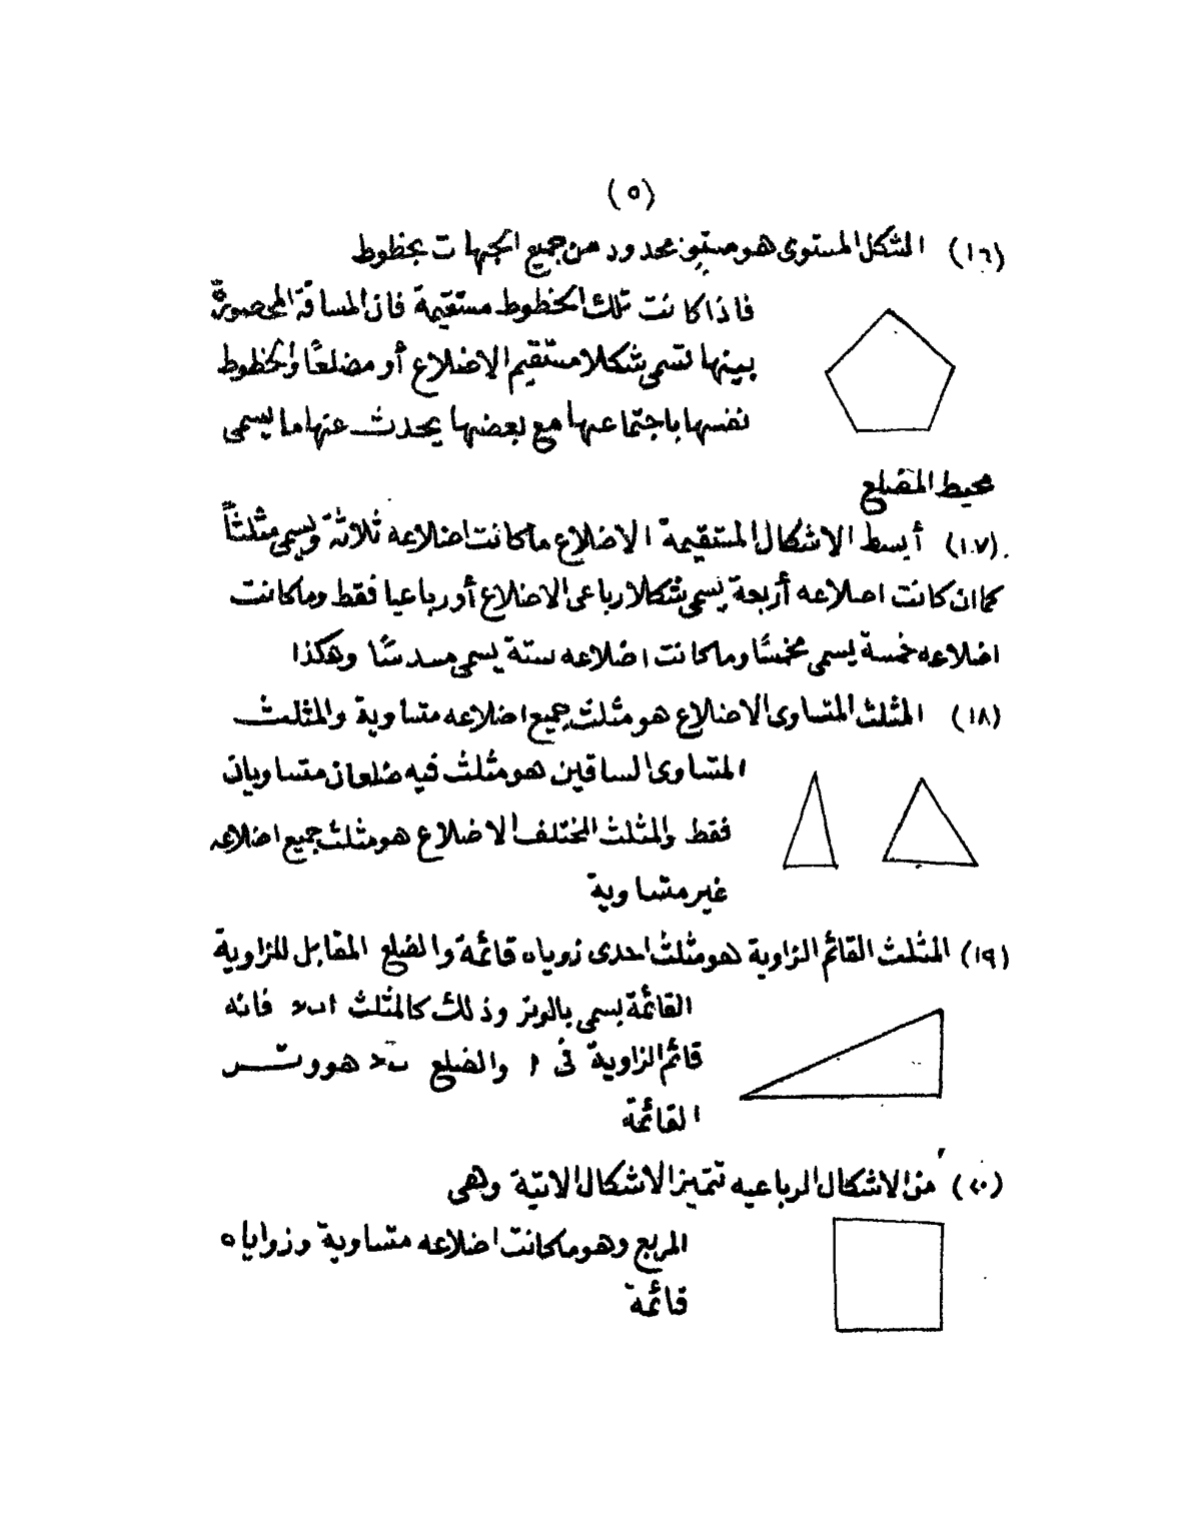 (٥)
(١٦) الشكل المستوى هو مستو محدود من جميع الجهات بخطوط
فاذا كانت تلك الخطوط مستقيمة فان المسافة المحصورة
بينها تسمى شكلا مستقيم الاضلاع أو مضلعًا والخطوط
نفسها باجتماعها مع بعضها يحدث عنها ما يسمى
محيط المضلع
(١٧) أبسط الاشكال المستقيمة الاضلاع ما كانت اضلاعه ثلاثة ويسمى مثلثاً
كما ان كانت اضلاعه أربعة يسمى شكلا رباعى الاضلاع أو رباعيا فقط وما كانت
اضلاعه خمسة يسمى مخمسًا وما كانت اضلاعه ستة يسمى مسدسًا وهكذا
(١٨) المثلث المتساوى الاضلاع هو مثلث جميع اضلاعه متساوية والمثلث
المتساوى الساقين هو مثلث فيه ضلعان متساويان
فقط والمثلث المختلف الاضلاع هو مثلث جميع اضلاعه
غير متساوية
(١٩) المثلث القائم الزاوية هو مثلث احدى زوياه قائمة والضلع المقابل للزاوية
القائمة يسمى بالوتر وذلك كالمثلث ا ب ح فانه
قائم الزاوية فى ا والضلع ب ح هو وتر
القائمة
(٢٠) من الاشكال الرباعيه تتميز الاشكال الاتية وهى
المربع وهو ما كانت اضلاعه متساوية وزواياه
قائمة